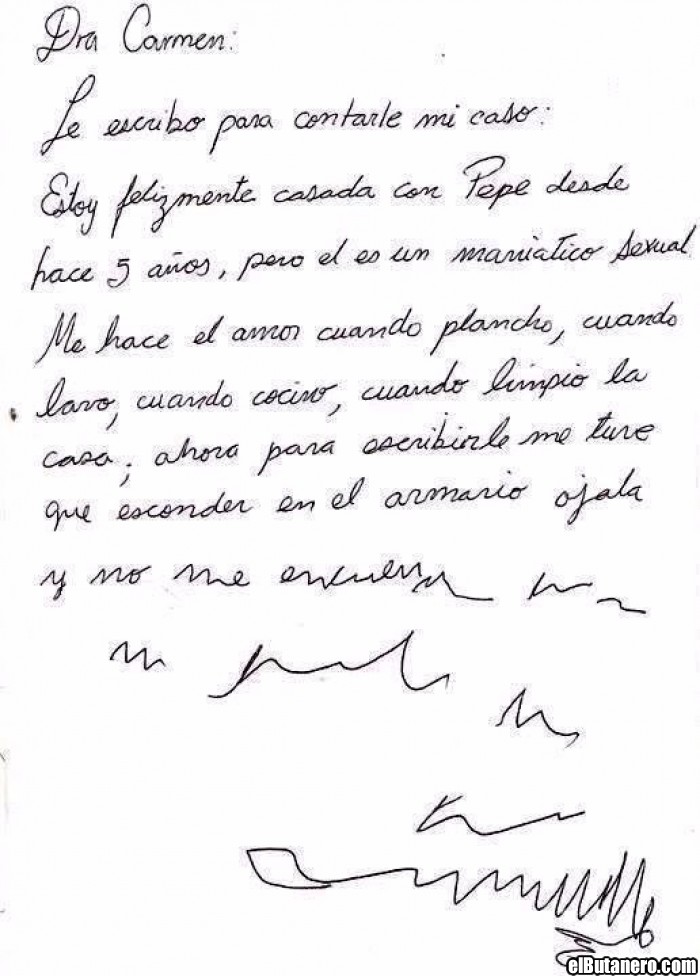 Dra Carmen:
Le escribo para contarle mi caso:
Estoy felizmente casada con Pepe desde
hace 5 años, pero el es un maniatico sexual.
Me hace el amor cuando plancho, cuando
lavo, cuando cocino, cuando limpio la
casa; ahora para escribirle me tuve
que esconder en el armario ojala
y no me encuen
elButanero.com